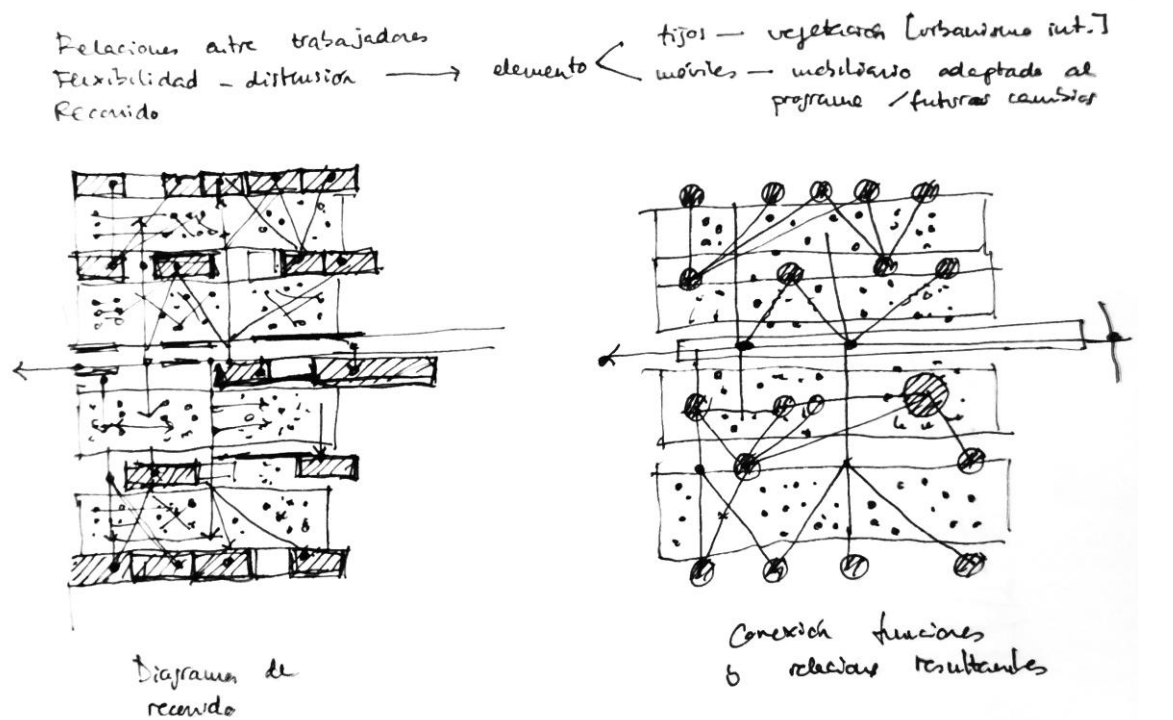 Relaciones entre trabajadores
Flexibilidad - distensión → elemento
Recorrido
fijos — vegetación [urbanismo int.]
móviles — mobiliario adaptado al
programa / futuros cambios
Diagrama de
recorrido
Conexión funciones
ó relaciones resultantes